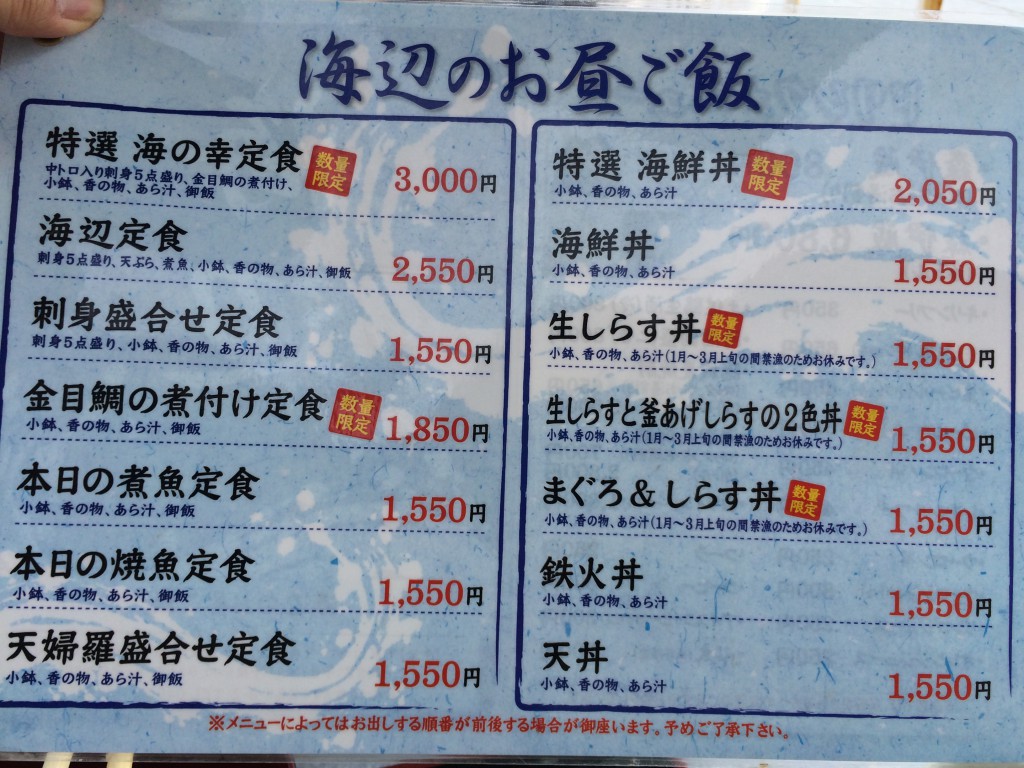 海辺のお昼ご飯
特選 海の幸定食 数量限定
中トロ入り刺身5点盛り、金目鯛の煮付け、
小鉢、香の物、あら汁、御飯
3,000円
海辺定食
刺身5点盛り、天ぷら、煮魚、小鉢、香の物、あら汁、御飯
2,550円
刺身盛合せ定食
刺身5点盛り、小鉢、香の物、あら汁、御飯
1,550円
金目鯛の煮付け定食 数量限定
小鉢、香の物、あら汁、御飯
1,850円
本日の煮魚定食
小鉢、香の物、あら汁、御飯
1,550円
本日の焼魚定食
小鉢、香の物、あら汁、御飯
1,550円
天婦羅盛合せ定食
小鉢、香の物、あら汁、御飯
1,550円
特選 海鮮丼 数量限定
小鉢、香の物、あら汁
2,050円
海鮮丼
小鉢、香の物、あら汁
1,550円
生しらす丼 数量限定
小鉢、香の物、あら汁(1月〜3月上旬の間禁漁のためお休みです。)
1,550円
生しらすと釜あげしらすの2色丼 数量限定
小鉢、香の物、あら汁(1月〜3月上旬の間禁漁のためお休みです。)
1,550円
まぐろ&しらす丼 数量限定
小鉢、香の物、あら汁(1月〜3月上旬の間禁漁のためお休みです。)
1,550円
鉄火丼
小鉢、香の物、あら汁
1,550円
天丼
小鉢、香の物、あら汁
1,550円
※メニューによってはお出しする順番が前後する場合が御座います。予めご了承下さい。